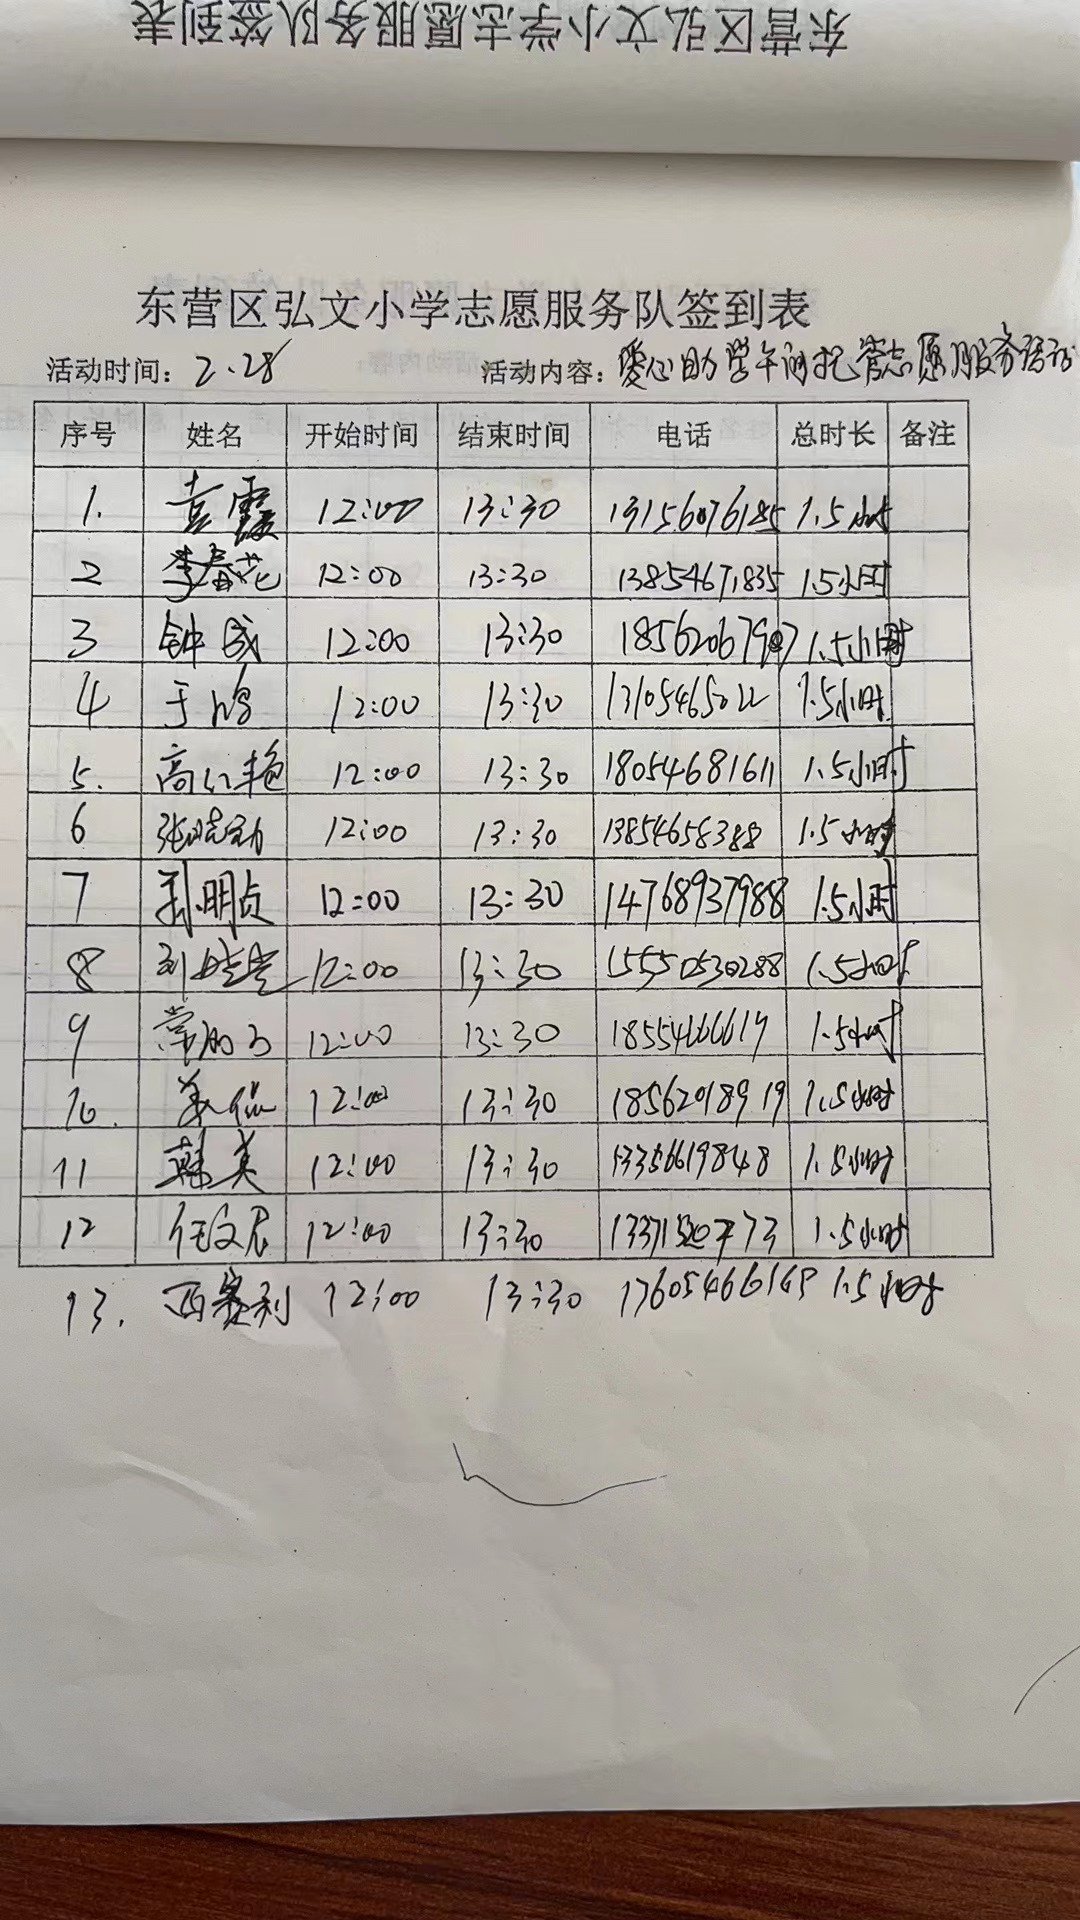 东营区弘文小学志愿服务队签到表
东营区弘文小学志愿服务队签到表
活动时间：2.28 活动内容：爱心助学午间托管志愿服务活动
序号 姓名 开始时间 结束时间 电话 总时长 备注
1. 袁霞 12:00 13:30 13156076185 1.5小时
2 李春花 12:00 13:30 13854671835 1.5小时
3 钟成 12:00 13:30 18562067907 1.5小时
4 于鸿 12:00 13:30 13105465022 1.5小时
5. 高红艳 12:00 13:30 18054681611 1.5小时
6 张晓动 12:00 13:30 13854658388 1.5小时
7 孙明贞 12:00 13:30 14768937988 1.5小时
8 刘 12:00 13:30 15550530288 1.5小时
9 常 12:00 13:30 1.5小时
10. 12:00 13:30 18562018919 1.5小时
11 韩美 12:00 13:30 13356619848 1.5小时
12 任文君 12:00 13:30 1.5小时
13. 西赛利 12:00 13:30 1.5小时